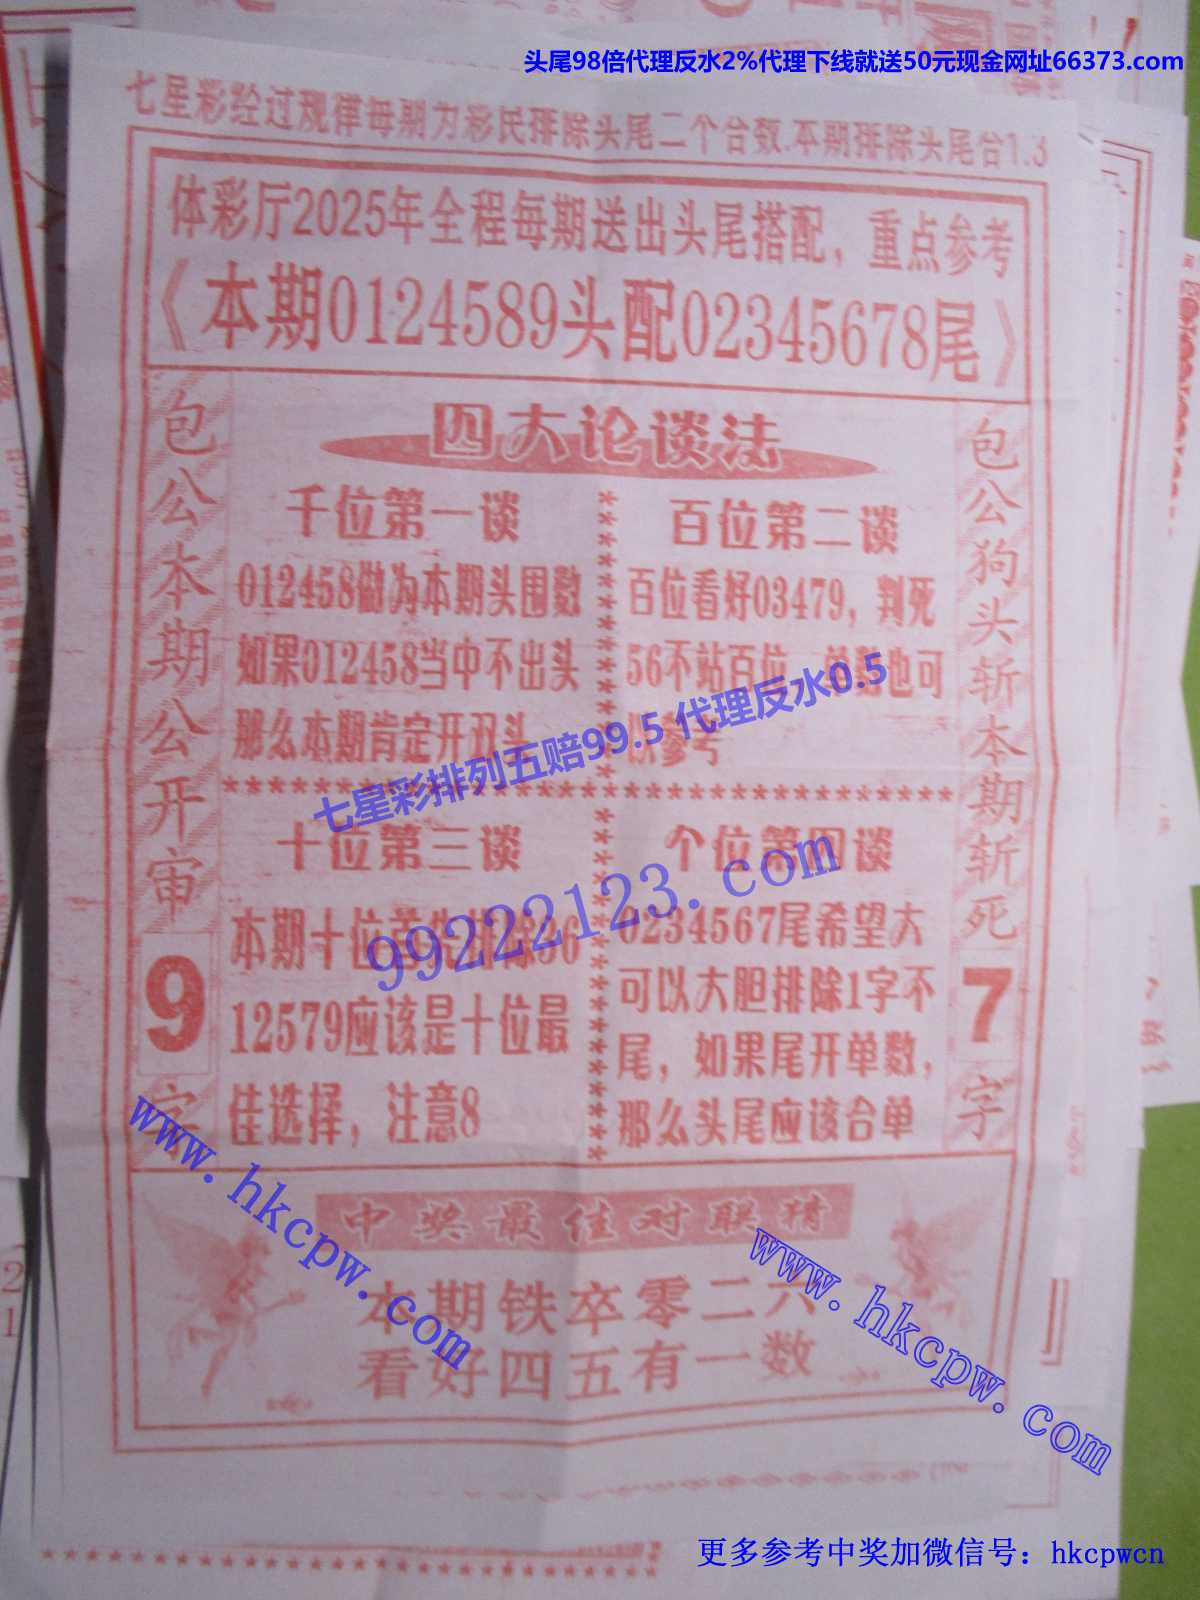 头尾98倍代理反水2%代理下线就送50元现金网址66373.com
七星彩经过规律每期为彩民排除头尾二个合数.本期排除头尾合1.3
体彩厅2025年全程每期送出头尾搭配，重点参考
《本期0124589头配02345678尾》
包公本期公开审9字
四大论谈法
千位第一谈
012458做为本期头围数
如果012458当中不出头
那么本期肯定开双头
百位第二谈
百位看好03479，判死
56不站百位 也可
参考
七星彩排列五赔99.5 代理反水0.5
十位第三谈
本期十位首先排除
12579应该是十位最
佳选择，注意8
个位第四谈
0234567尾希望大
可以大胆排除1字不
尾，如果尾开单数，
那么头尾应该合单
99222123.com
包公狗头斩本期斩死7字
中奖最佳对联猜
本期铁卒零二六
看好四五有一数
www.hkcpw.com
www.hkcpw.com
更多参考中奖加微信号：hkcpwcn